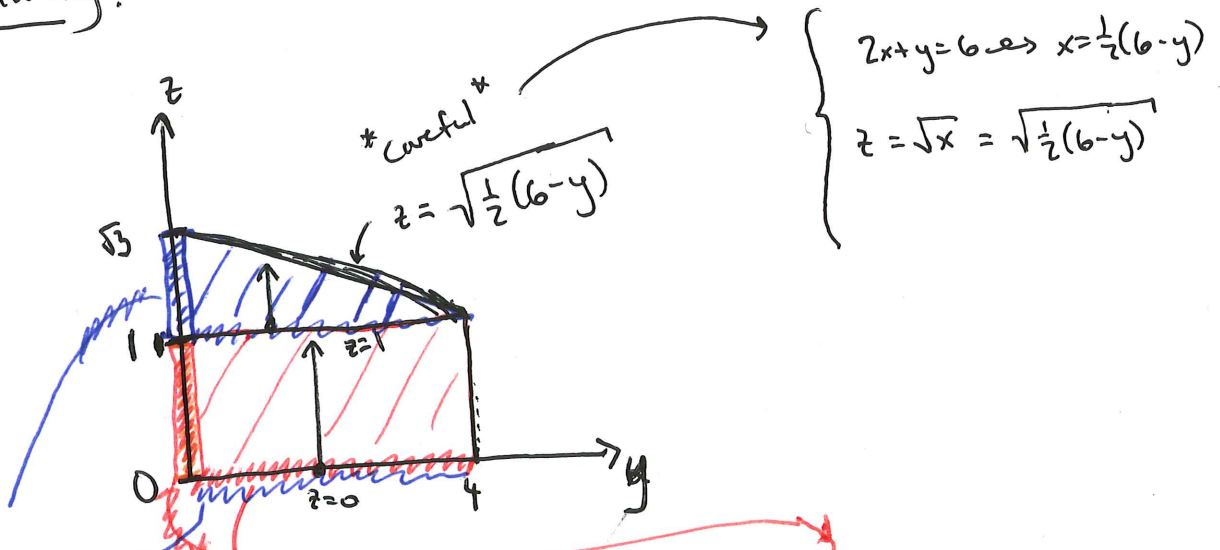 2x+y=6 ⇝ x=½(6-y)
z = √x = √(½(6-y))
z
*careful*
z = √(½(6-y))
√3
1
z=1
0
z=0
4
y